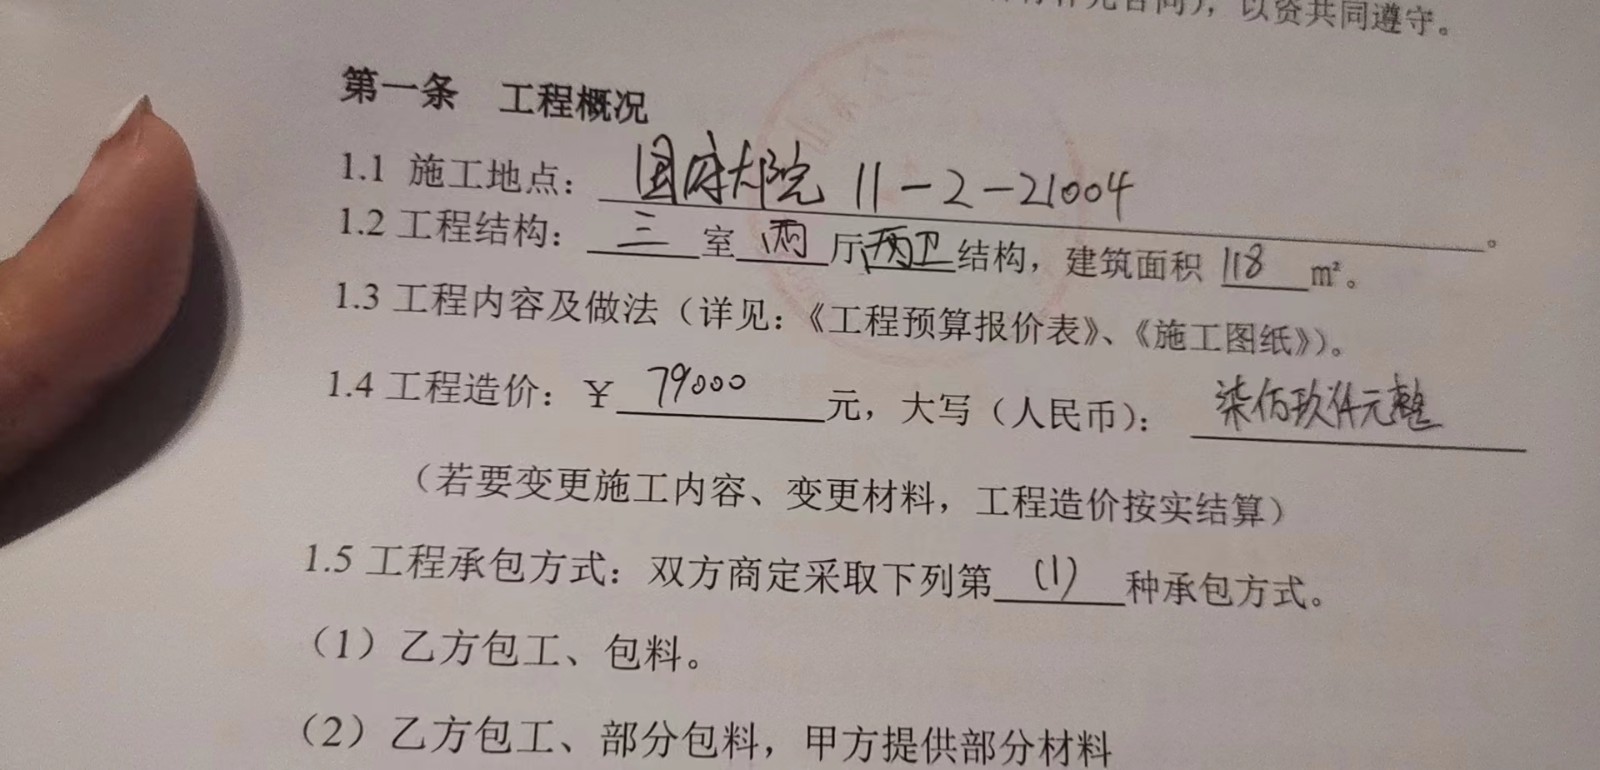 以资共同遵守。
第一条 工程概况
1.1 施工地点：国府大院 11-2-21004。
1.2 工程结构：三室两厅两卫结构，建筑面积118 m²。
1.3 工程内容及做法（详见：《工程预算报价表》、《施工图纸》）。
1.4 工程造价：￥79000元，大写（人民币）：柒佰玖仟元整
（若要变更施工内容、变更材料，工程造价按实结算）
1.5 工程承包方式：双方商定采取下列第(1)种承包方式。
（1）乙方包工、包料。
（2）乙方包工、部分包料，甲方提供部分材料